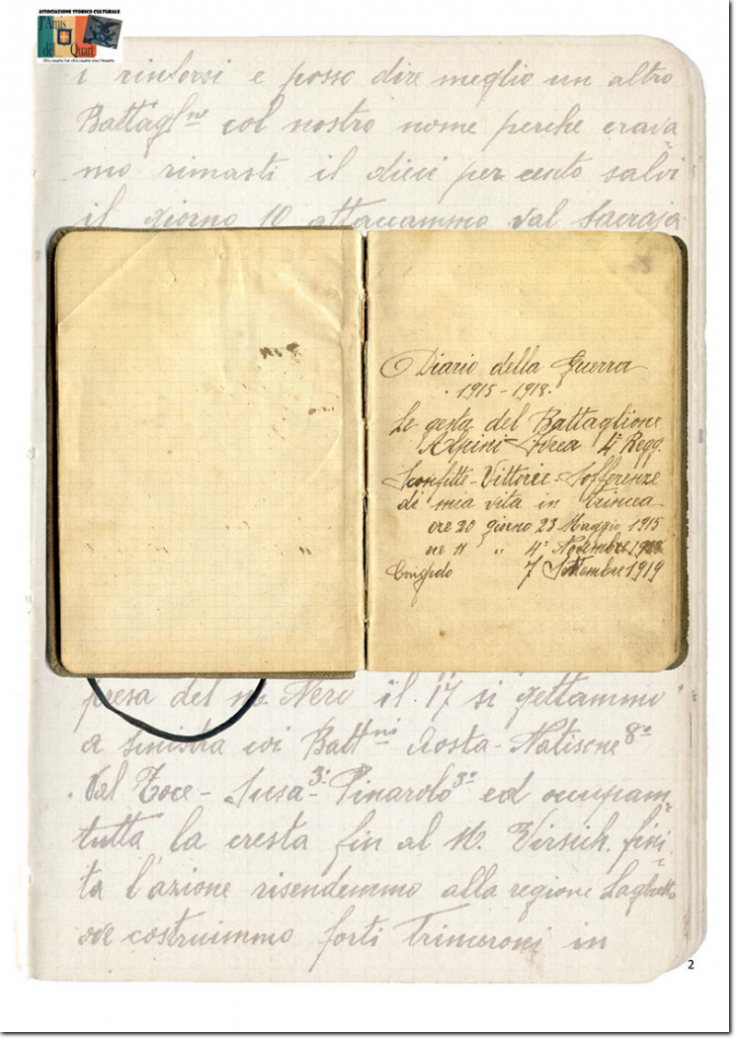 ASSOCIAZIONE STORICO CULTURALE
l'Amis
de Quart
i rinforsi e posso dire meglio un altro
Battagl.ne col nostro nome perche erava
mo rimasti il dieci per cento salvi
il giorno 10 attaccammo val
Diario della Guerra
1915-1918.
Le gesta del Battaglione
Alpini Ivrea 4° Regg.
Sconfitte-Vittorie-Sofferenze
di mia vita in trincea
ore 20 giorno 23 Maggio 1915
ore 11 " 4° Novembre 1918
Congedo 7 Settembre 1919
presa del M. Nero il 17 si gettammo
a sinistra coi Batt.ni Aosta-Natisone 8°
Val Toce-Susa 3°-Pinarolo 3° ed occupam
tutta la cresta fin al M. Virsich. fini
ta l'azione risendemmo alla regione
ove costruimmo forti Trinceroni in
2